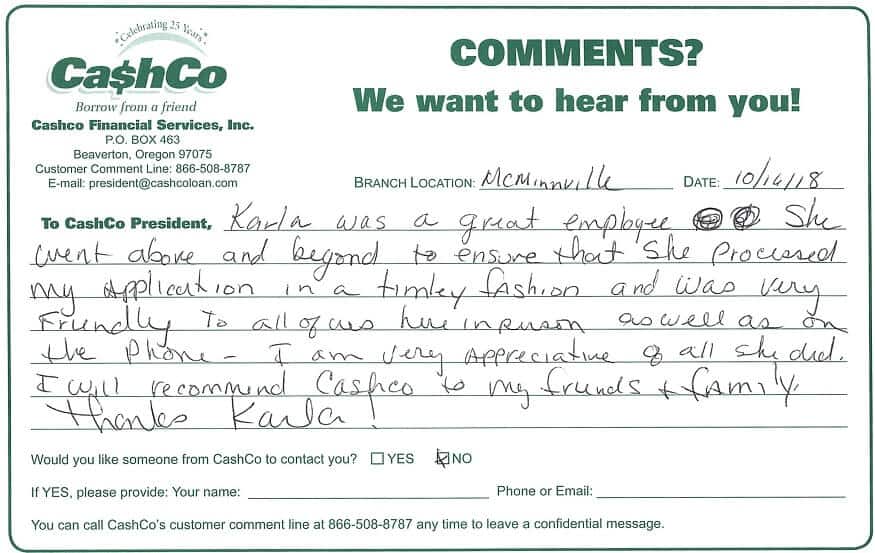 Celebrating 25 Years
Ca$hCo
Borrow from a friend
Cashco Financial Services, Inc.
P.O. BOX 463
Beaverton, Oregon 97075
Customer Comment Line: 866-508-8787
E-mail: president@cashcoloan.com
COMMENTS?
We want to hear from you!
BRANCH LOCATION: McMinnville DATE: 10/16/18
To CashCo President, Karla was a great employee She
went above and beyond to ensure that she processed
my application in a timley fashion and was very
Friendly to all of us here in person as well as on
the Phone - I am very appreciative of all she did.
I will recommend Cashco to my friends + family.
thanks Karla!
Would you like someone from CashCo to contact you? YES NO
If YES, please provide: Your name: Phone or Email:
You can call CashCo's customer comment line at 866-508-8787 any time to leave a confidential message.